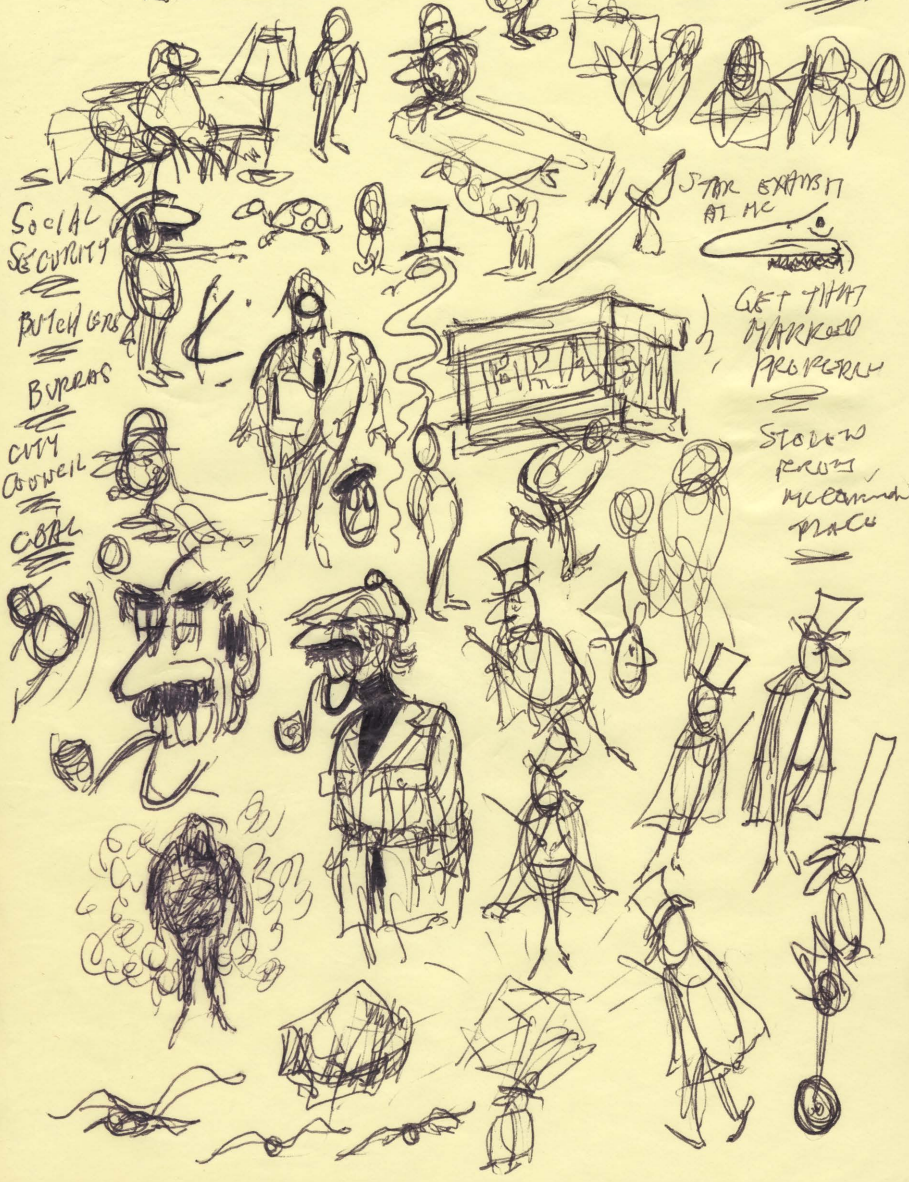 SOCIAL
SECURITY
BUTCHERS
BURRAS
CITY
COUNCIL
COAL
STAR EXHIBIT
AT MC
GET THAT
MARKED
PROPERLY
STOLEN
FROM
PLACE